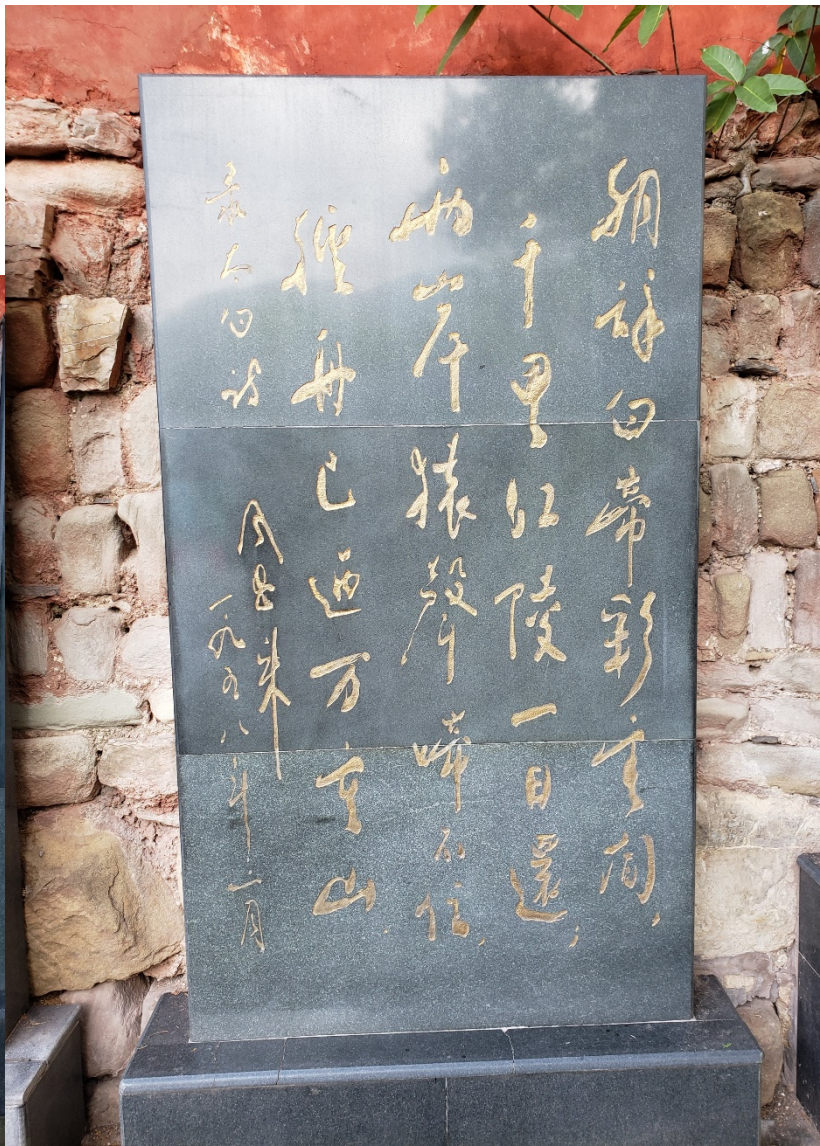 朝辞白帝彩雲间,
千里江陵一日還,
兩岸猿聲啼不住,
輕舟已過万重山.
录太白诗
周恩来
一九五八年二月